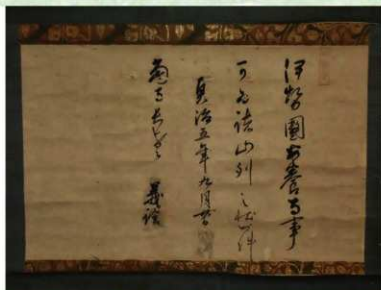 伊勢國安養寺事
可為諸山列之状如件
貞治五年九月廿
當寺長老 義詮